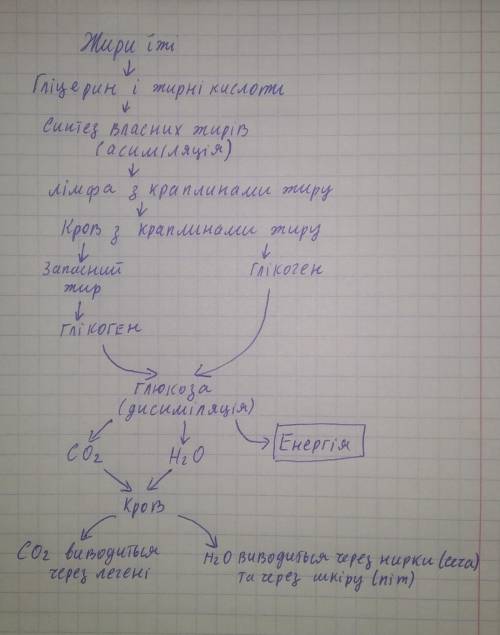 Жири їжі
Гліцерин і жирні кислоти
Синтез власних жирів
(асиміляція)
Лімфа з краплинами жиру
Кров з краплинами жиру
Запасний
жир
Глікоген
Глікоген
Глюкоза
(дисиміляція)
CO2
H2O
Енергія
Кров
CO2 виводиться
через легені
H2O виводиться через нирки (сеча)
та через шкіру (піт)